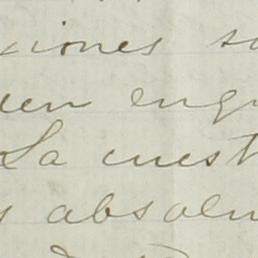 xiones so
den engr
La cuest
s absolu